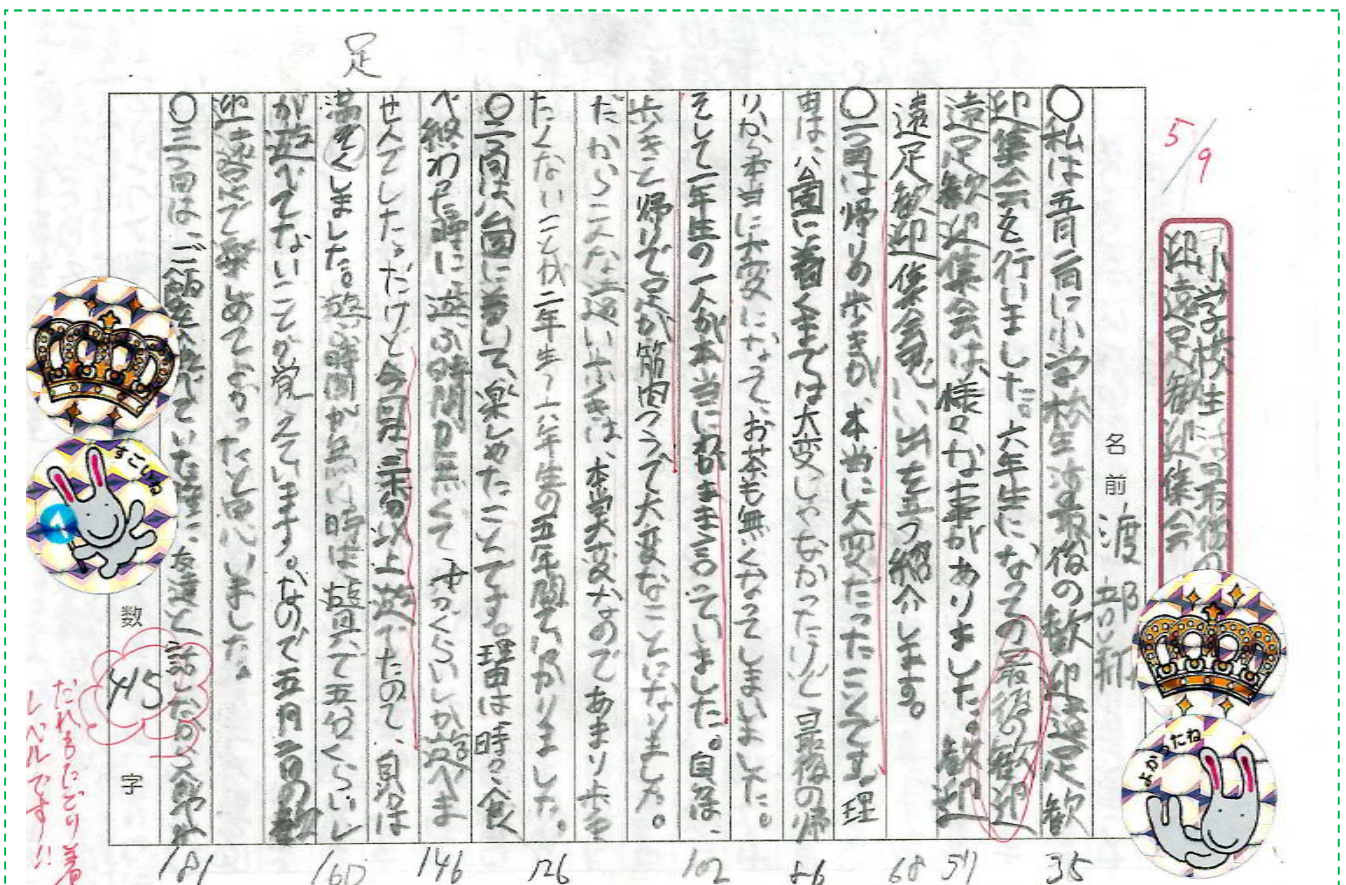 5/9
小学校生活最後の
迎遠足歓迎集会
名前 渡部新
〇私は五月二日に小学校生活最後の歓迎遠足歓
迎集会を行いました。六年生になっての最後の歓迎
遠足歓迎集会は、様々な事がありました。歓迎
遠足歓迎集会思い出を三つ紹介します。
〇一つ目は帰りの歩きが、本当に大変だったことです。理
由は、公園に着くまでは大変じゃなかったけど最後の帰
りから本当に大変になって、お茶も無くなってしまいました。
そして一年生の一人が本当にわがまま言っていました。自分は、
歩きと帰りで足が筋肉つうで大変なことになりました。
だからこんな遠い歩きは、本当大変なのであまり歩き
たくないことが二年生〜六年生の五年間で分かりました。
〇二つ目は公園に着いて、楽しめたことです。理由は時々、食
べ終わった時に遊ぶ時間が無くて五分くらいしか遊べま
せんでした。だけど今日は、三十分以上遊べたので、自分は
満そくしました。遊ぶ時間が無い時は遊具で五分くらいし
か遊べてないことが覚えています。なので五月二日の歓
迎遠足で楽しめてよかったなと思いました。
〇三つ目は、ご飯を食べていた時に友達と話したり
足
数
415
字
35
57
68
86
102
126
146
160
181
すごいね
よかったね
だれもたどり着
レベルです!!